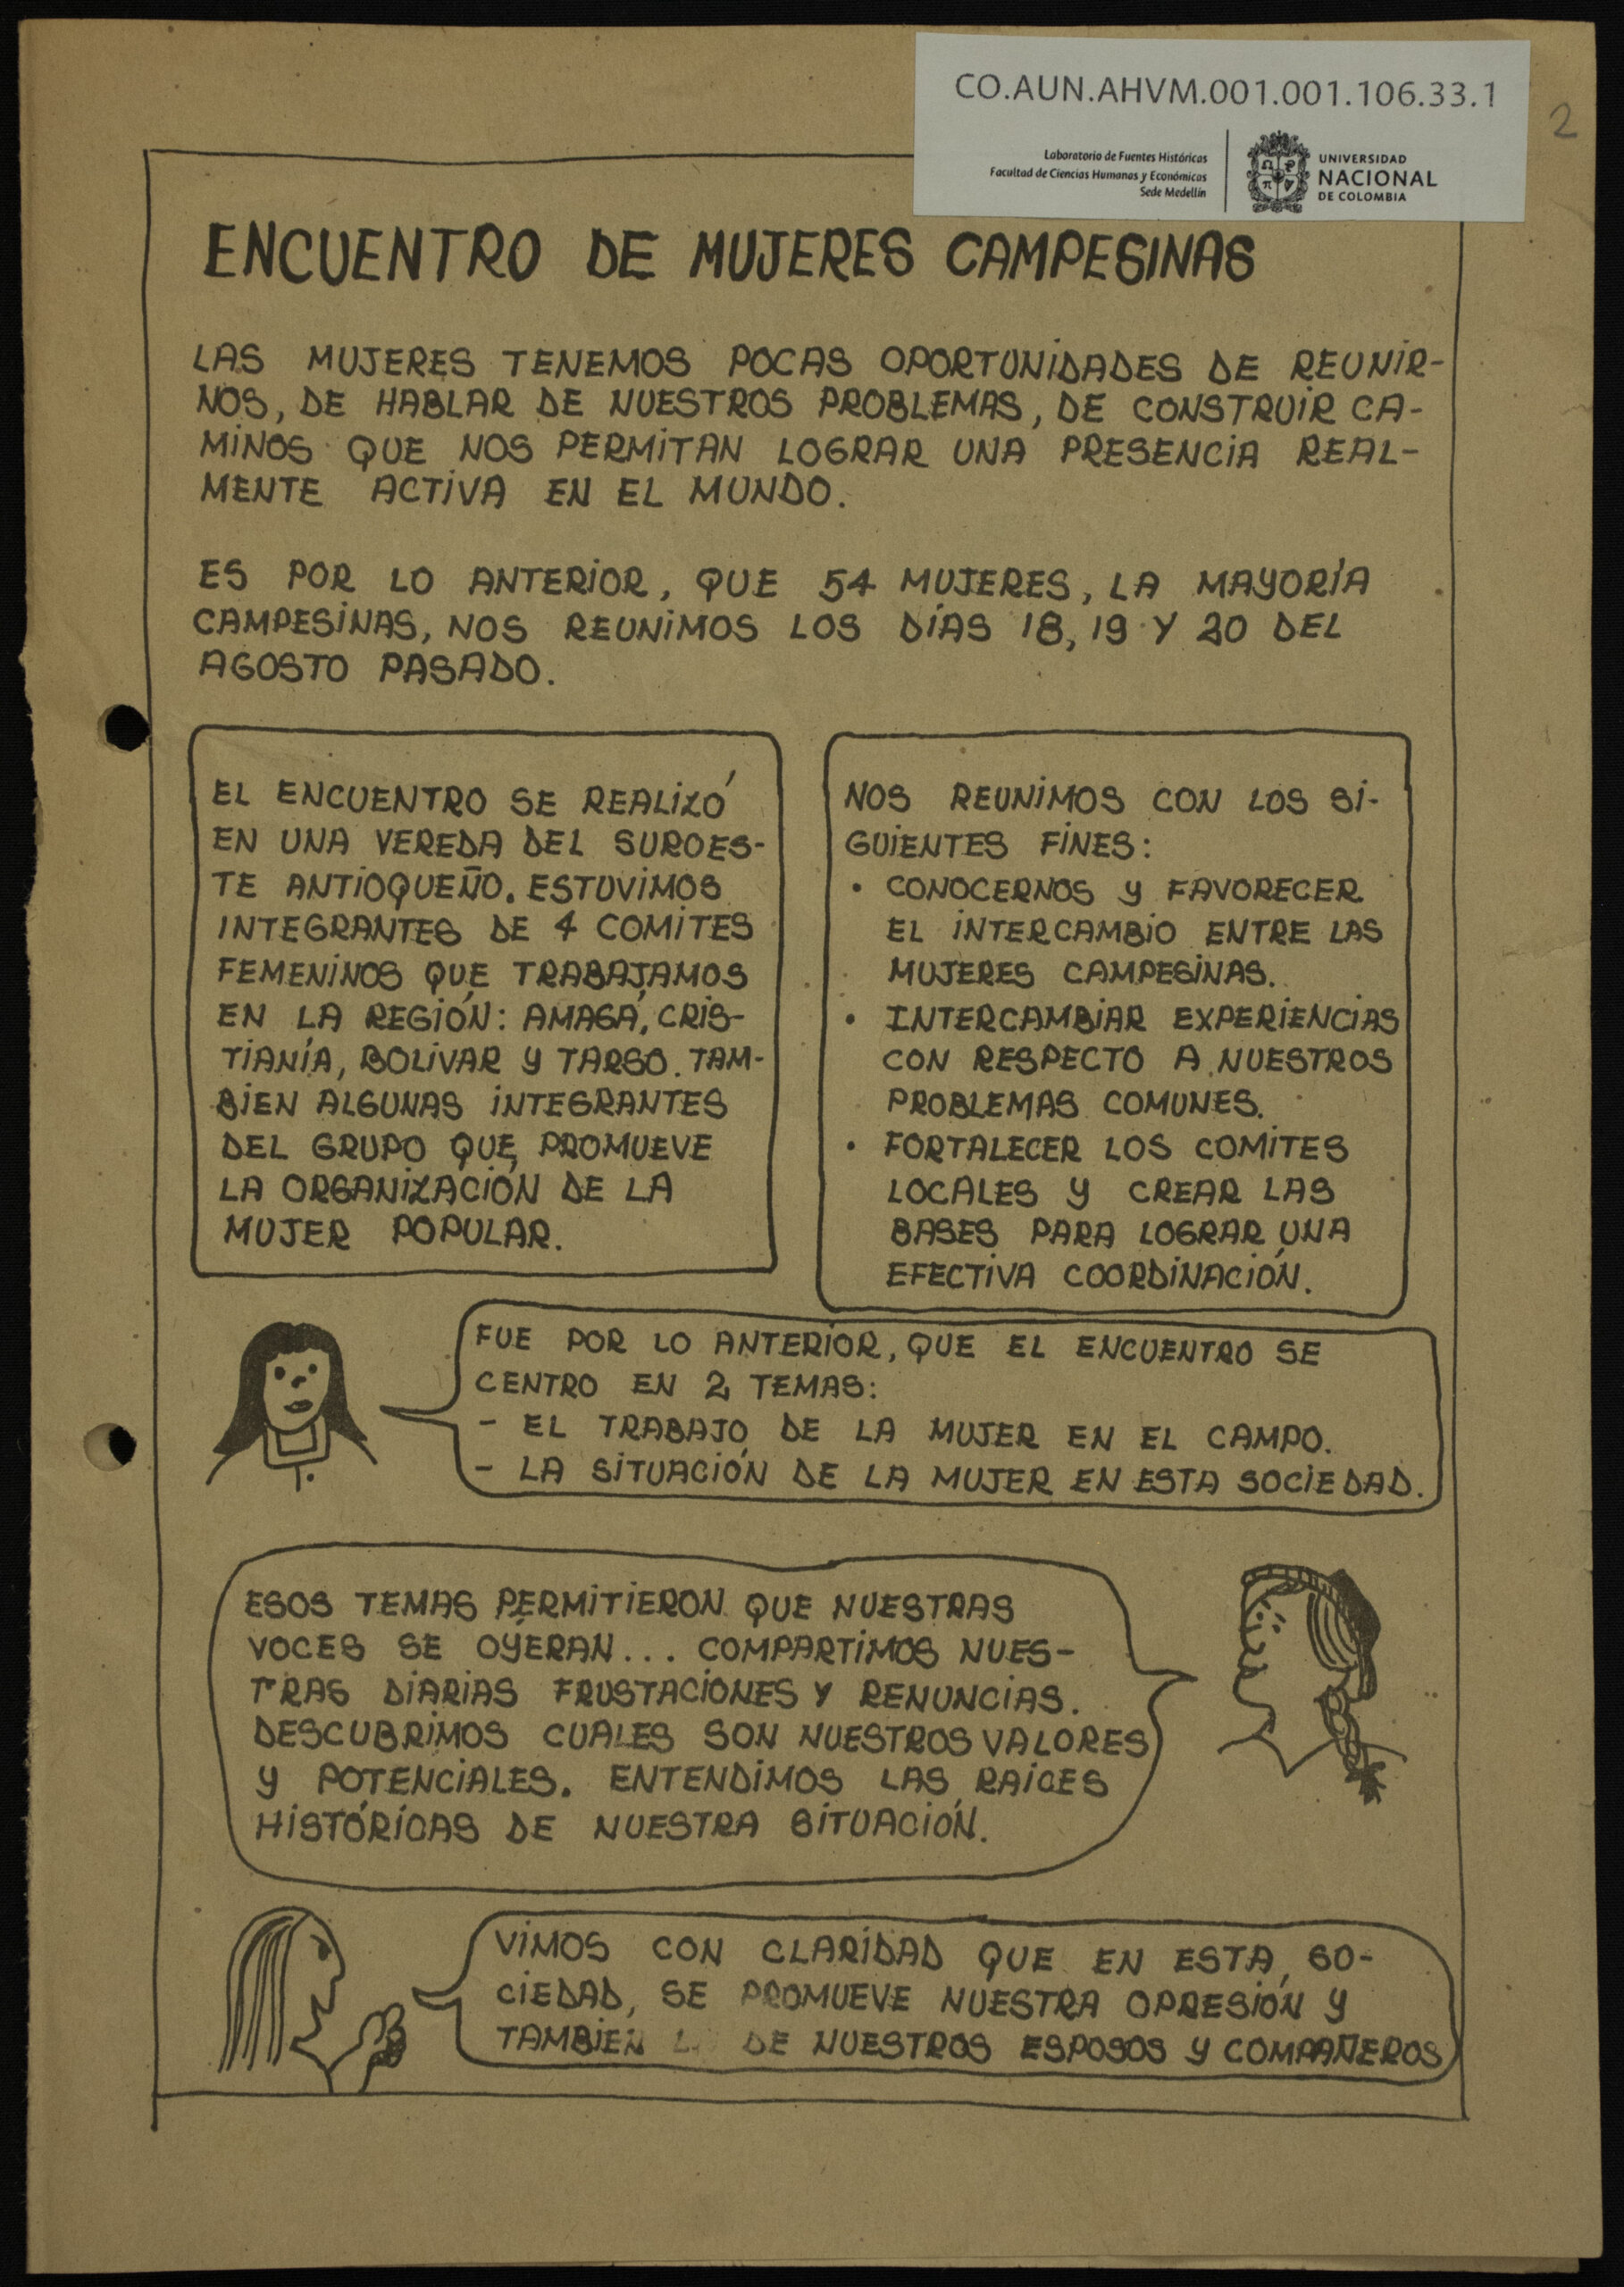 CO.AUN.AHVM.001.001.106.33.1
2
Laboratorio de Fuentes Históricas
Facultad de Ciencias Humanas y Económicas
Sede Medellín
UNIVERSIDAD
NACIONAL
DE COLOMBIA
ENCUENTRO DE MUJERES CAMPESINAS
LAS MUJERES TENEMOS POCAS OPORTUNIDADES DE REUNIR-
NOS, DE HABLAR DE NUESTROS PROBLEMAS, DE CONSTRUIR CA-
MINOS QUE NOS PERMITAN LOGRAR UNA PRESENCIA REAL-
MENTE ACTIVA EN EL MUNDO.
ES POR LO ANTERIOR, QUE 54 MUJERES, LA MAYORÍA
CAMPESINAS, NOS REUNIMOS LOS DÍAS 18, 19 Y 20 DEL
AGOSTO PASADO.
EL ENCUENTRO SE REALIZÓ
EN UNA VEREDA DEL SUROES-
TE ANTIOQUEÑO. ESTUVIMOS
INTEGRANTES DE 4 COMITES
FEMENINOS QUE TRABAJAMOS
EN LA REGIÓN: AMAGÁ, CRIS-
TIANÍA, BOLIVAR Y TARSO. TAM-
BIEN ALGUNAS INTEGRANTES
DEL GRUPO QUE PROMUEVE
LA ORGANIZACIÓN DE LA
MUJER POPULAR.
NOS REUNIMOS CON LOS SI-
GUIENTES FINES:
• CONOCERNOS Y FAVORECER
EL INTERCAMBIO ENTRE LAS
MUJERES CAMPESINAS.
• INTERCAMBIAR EXPERIENCIAS
CON RESPECTO A NUESTROS
PROBLEMAS COMUNES.
• FORTALECER LOS COMITES
LOCALES Y CREAR LAS
BASES PARA LOGRAR UNA
EFECTIVA COORDINACIÓN.
FUE POR LO ANTERIOR, QUE EL ENCUENTRO SE
CENTRO EN 2 TEMAS:
- EL TRABAJO DE LA MUJER EN EL CAMPO.
- LA SITUACIÓN DE LA MUJER EN ESTA SOCIEDAD.
ESOS TEMAS PERMITIERON QUE NUESTRAS
VOCES SE OYERAN... COMPARTIMOS NUES-
TRAS DIARIAS FRUSTACIONES Y RENUNCIAS.
DESCUBRIMOS CUALES SON NUESTROS VALORES
Y POTENCIALES. ENTENDIMOS LAS RAICES
HISTÓRICAS DE NUESTRA SITUACIÓN.
VIMOS CON CLARIDAD QUE EN ESTA SO-
CIEDAD, SE PROMUEVE NUESTRA OPRESIÓN Y
TAMBIEN DE NUESTROS ESPOSOS Y COMPAÑEROS